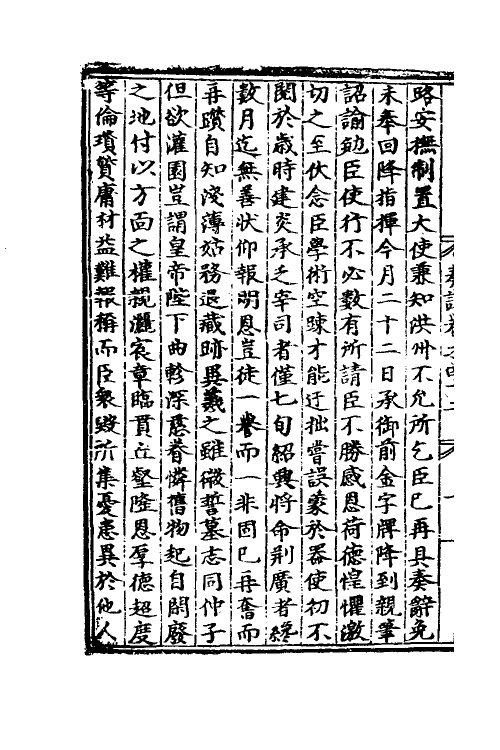 路安撫制置大使兼知洪州不允所乞臣已再具奏辭免
未奉回降指揮今月二十二日承御前金字牌降到親筆
詔諭勉臣使行不必數有所請臣不勝感恩荷德惶懼激
切之至伏念臣學術空疎才能迂拙嘗誤蒙於器使初不
閱於歲時建炎承乏宰司者僅七旬紹興將命荆廣者終
數月迄無善狀仰報明恩豈徒一夔而一非固已再奮而
再躓自知淺薄姑務退藏跡異羲之雖微誓墓志同仲子
但欲灌園豈謂皇帝陛下曲軫深慈眷憐舊物起自閒廢
之地付以方面之權親灑宸章臨貫丘壑隆恩厚德超度
等倫瓆質庸材益難報稱而臣衆毀所集憂恚異於他人